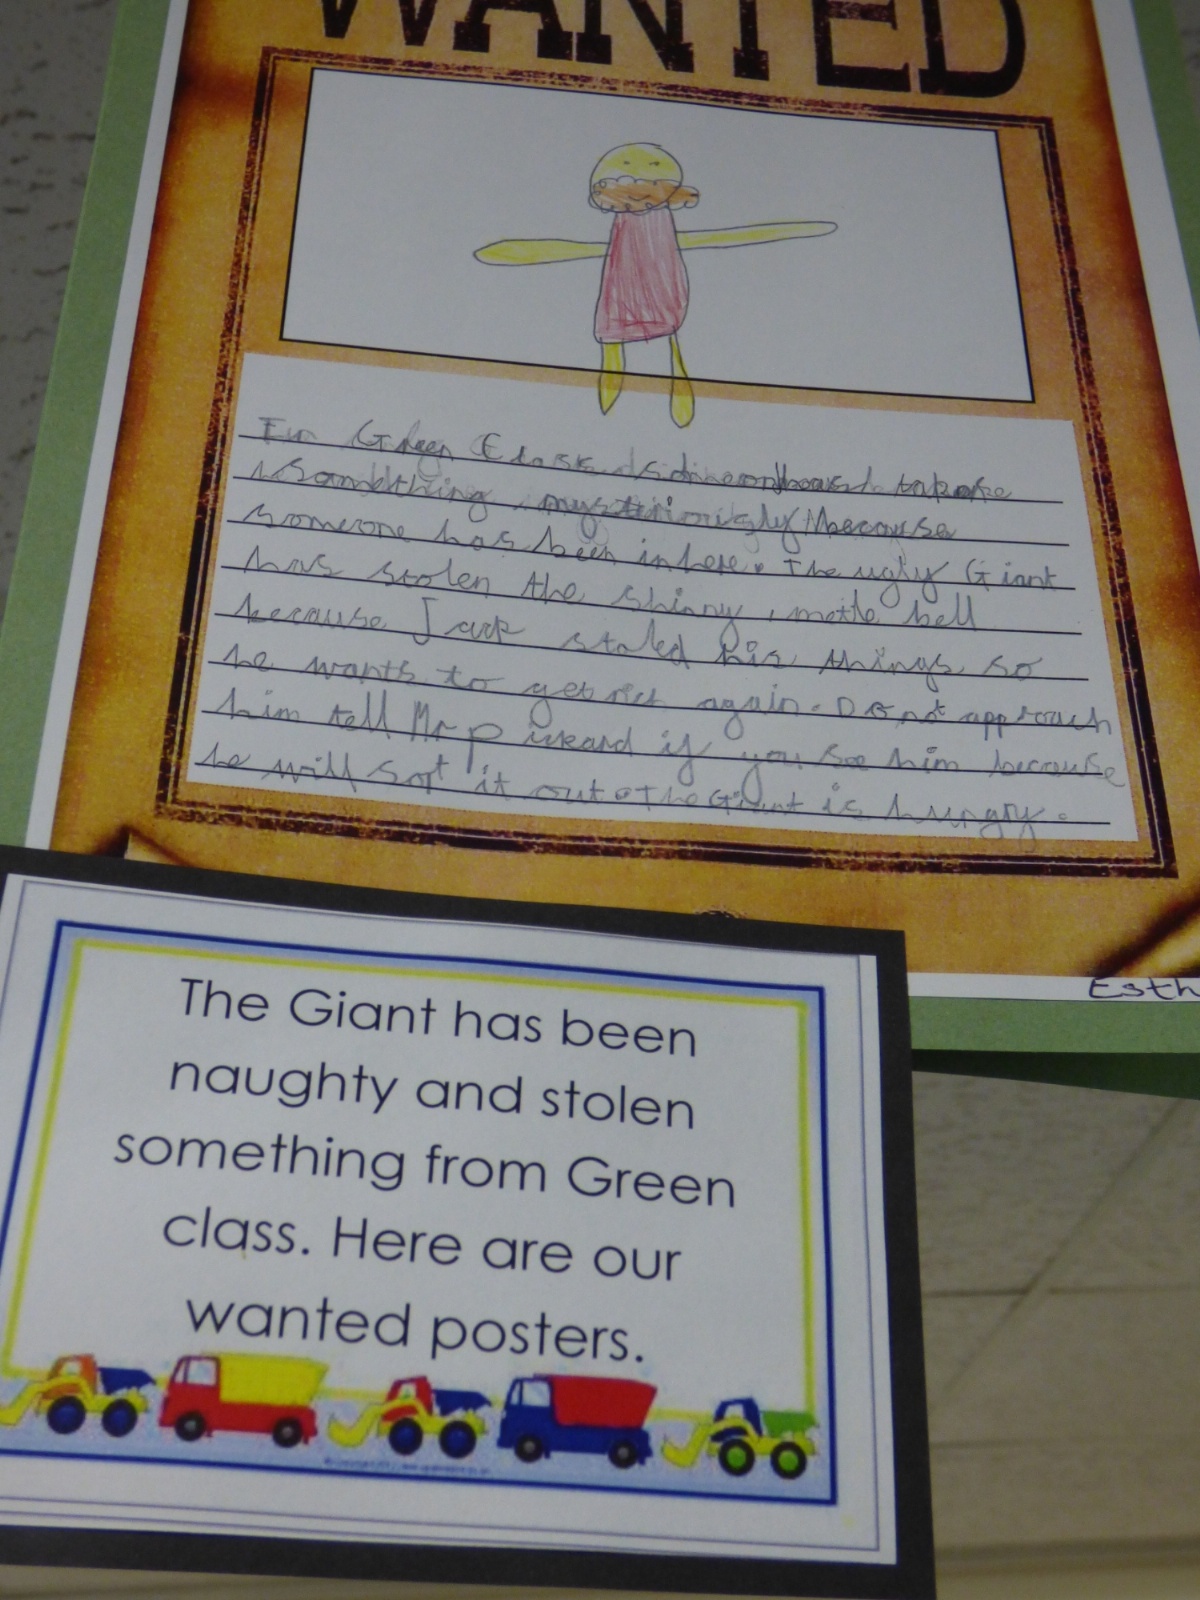 WANTED
In Green Class
something mysteriously because
someone has been in here. The ugly Giant
has stolen the shinny metle bell
because Jack staled his things so
he wants to get rich again. Do not approach
him tell Mr if you see him because
he will sort it out. The Giant is hungry.
Esth
The Giant has been
naughty and stolen
something from Green
class. Here are our
wanted posters.